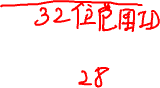 32位范围ID
28